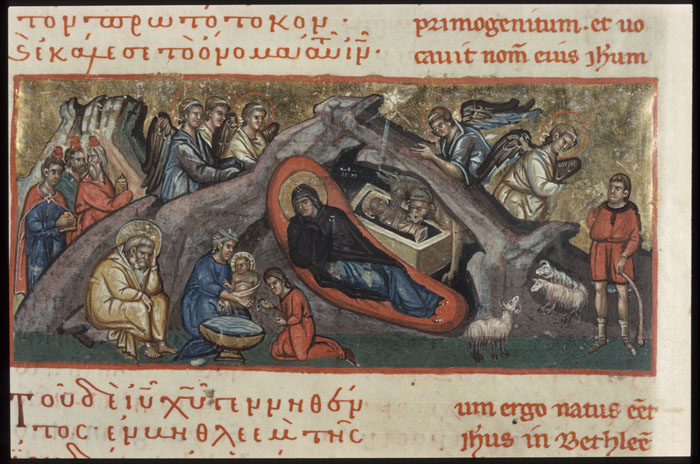 τὸν πρωτότοκον·
καὶ ἐκάλεσε τὸ ὄνομα αὐτοῦ ἰν̅·
primogenitum. et uo
cauit nom̅ eius ihum
Τοῦ δὲ ἰυ̅ χυ̅ γεννηθέν
τος ἐν βηθλεὲμ τῆς
um ergo natus eēt
ihus in Bethleē